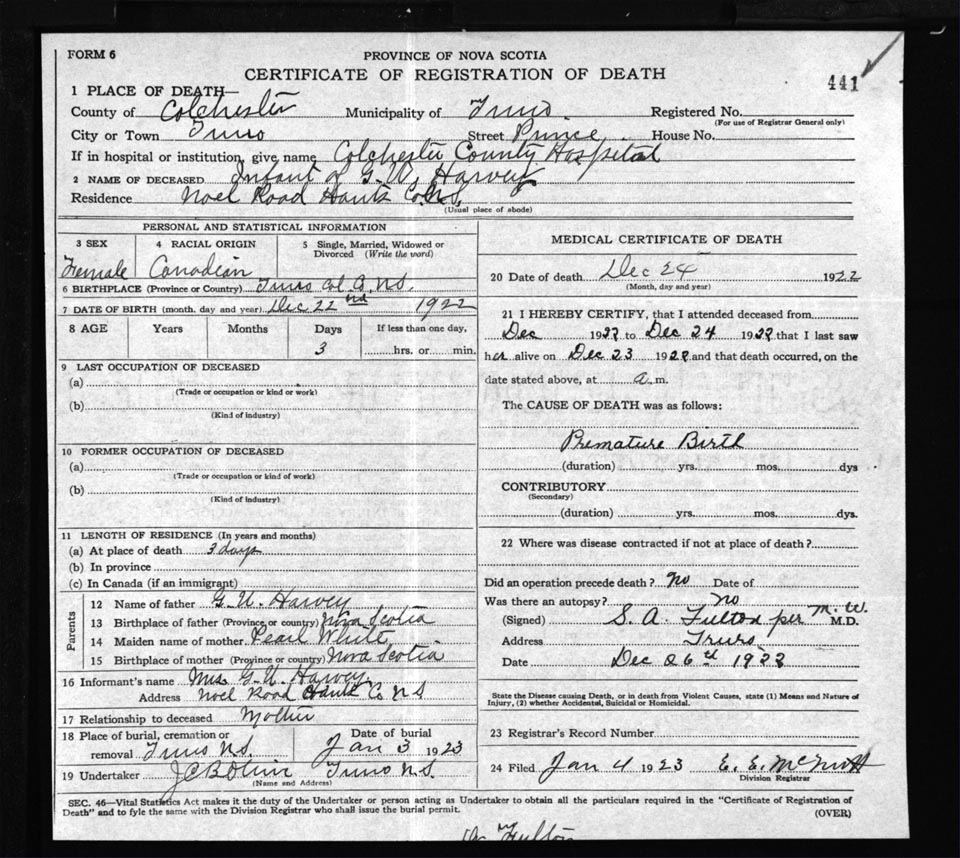 FORM 6
PROVINCE OF NOVA SCOTIA
CERTIFICATE OF REGISTRATION OF DEATH
441
1 PLACE OF DEATH—
County of Colchester Municipality of Truro. Registered No.
(For use of Registrar General only)
City or Town Truro Street Prince House No.
If in hospital or institution, give name Colchester County Hospital
2 NAME OF DECEASED Infant of G. W. Harvey
Residence Noel Road Hants Co. N.S.
(Usual place of abode)
PERSONAL AND STATISTICAL INFORMATION
3 SEX 4 RACIAL ORIGIN 5 Single, Married, Widowed or Divorced (Write the word)
Female Canadian
6 BIRTHPLACE (Province or Country) Truro Col. Co. N.S.
7 DATE OF BIRTH (month. day and year) Dec 22nd 1922
8 AGE Years Months Days If less than one day,
3 hrs. or min.
9 LAST OCCUPATION OF DECEASED
(a)
(Trade or occupation or kind or work)
(b)
(Kind of industry)
10 FORMER OCCUPATION OF DECEASED
(a)
(Trade or occupation or kind of work)
(b)
(Kind of industry)
11 LENGTH OF RESIDENCE (In years and months)
(a) At place of death 3 days
(b) In province
(c) In Canada (if an immigrant)
Parents
12 Name of father G. W. Harvey
13 Birthplace of father (Province or country) Nova Scotia
14 Maiden name of mother Pearl White
15 Birthplace of mother (Province or country) Nova Scotia
16 Informant's name Mrs. G. W. Harvey
Address Noel Road Hants Co N S
17 Relationship to deceased Mother
18 Place of burial, cremation or removal Truro N.S. Date of burial Jan 3 1923
19 Undertaker Truro N.S.
(Name and Address)
MEDICAL CERTIFICATE OF DEATH
20 Date of death Dec 24 1922
(Month, day and year)
21 I HEREBY CERTIFY, that I attended deceased from
Dec 1922 to Dec 24 1922 that I last saw
her alive on Dec 23 1922 and that death occurred, on the
date stated above, at a.m.
The CAUSE OF DEATH was as follows:
Premature Birth
(duration) yrs. mos. dys
CONTRIBUTORY
(Secondary)
(duration) yrs. mos. dys.
22 Where was disease contracted if not at place of death?
Did an operation precede death? No Date of
Was there an autopsy? No
(Signed) S. A. Fulton per M. W. M.D.
Address Truro
Date Dec 26th 1922
State the Disease causing Death, or in death from Violent Causes, state (1) Means and Nature of
Injury, (2) whether Accidental, Suicidal or Homicidal.
23 Registrar's Record Number
24 Filed Jan 4 1923 E. E. McNutt
Division Registrar
SEC. 46—Vital Statistics Act makes it the duty of the Undertaker or person acting as Undertaker to obtain all the particulars required in the "Certificate of Registration of
Death" and to fyle the same with the Division Registrar who shall issue the burial permit.
(OVER)
Fulton